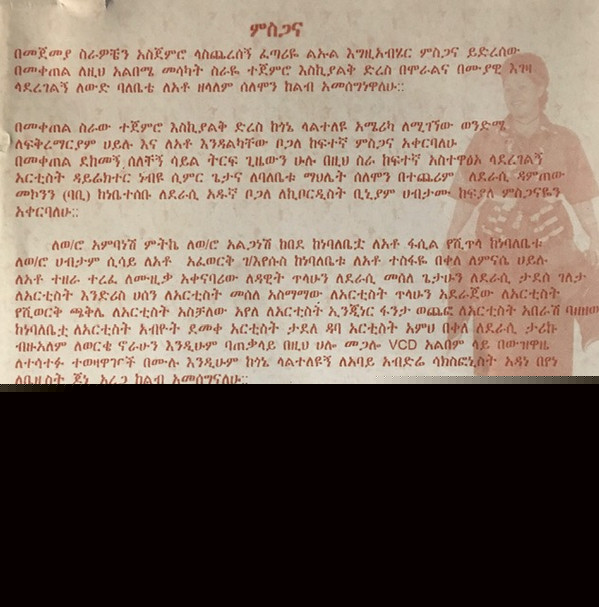 ምስጋና
በመጀመያ ስራዎቼን አስጀምሮ ላስጨረሰኝ ፈጣሪዬ ልኡል እግዚአብሄር ምስጋና ይድረሰው
በመቀጠል ለዚህ አልበሜ መሳካት ስራዬ ተጀምሮ እስኪያልቅ ድረስ በሞራልና በሙያዊ እገዛ
ላደረገልኝ ለውድ ባለቤቴ ለአቶ ዘላለም ሰለሞን ከልብ አመሰግነዋለሁ::
በመቀጠል ስራው ተጀምሮ እስኪያልቅ ድረስ ከጎኔ ላልተለዩ አሜሪካ ለሚገኘው ወንድሜ
ለፍቅረማርያም ሀይሉ እና ለአቶ እንዳልካቸው ቦጋለ ከፍተኛ ምስጋና አቀርባለሁ
በመቀጠል ደከመኝ ሰለቸኝ ሳይል ትርፍ ጊዜውን ሁሉ በዚህ ስራ ከፍተኛ አስተዋፅኦ ላደረገልኝ
አርቲስት ዳይሬክተር ነብዩ ሲምር ጌታና ለባለቤቱ ማህሌት ሰለሞን በተጨሪም ለደራሲ ዳምጠው
መኮንን (ባቢ) ከነቤተሰቡ ለደራሲ አዱኛ ቦጋለ ለኪቦርዲስት ቢኒያም ሀብታሙ ከፍያለ ምስጋናዬን
አቀርባለሁ::
ለወ/ሮ አምባነሽ ምትኬ ለወ/ሮ አልጋነሽ ከበደ ከነባለቤቷ ለአቶ ፋሲል የሺጥላ ከነባለቤቱ
ለወ/ሮ ሀብታም ሲሳይ ለአቶ አፈወርቅ ገ/እየሱስ ከነባለቤቱ ለአቶ ተስፋዬ በቀለ ለምናሴ ሀይሉ
ለአቶ ተዘራ ተረፈ ለሙዚቃ አቀናባሪው ለዳዊት ጥላሁን ለደራሲ መሰለ ጌታሁን ለደራሲ ታደሰ ገለታ
ለአርቲስት እንድሪስ ሀሰን ለአርቲስት መሰለ አስማማው ለአርቲስት ጥላሁን አደራጀው ለአርቲስት
የሺወርቅ ጫቅሌ ለአርቲስት አስቻለው አየለ ለአርቲስት ኢንጂነር ፋንታ ወጨፎ ለአርቲስት አበራሽ
ከነባለቤቷ ለአርቲስት አብዮት ደመቀ አርቲስት ታደለ ዳባ አርቲስት አምሀ በቀለ ለደራሲ ታሪኩ
ብዙአለም ለወርቄ ኖራሁን እንዲሁም ባጠቃላይ በዚህ ሀሎ መጋሎ VCD አልበም ላይ በውዝዋዜ
ለተሳተፉ ተወዛዋዦች በሙሉ እንዲሁም ከጎኔ ላልተለዩኝ ለአባይ አብድሬ ሳክስፎኒስት አዳነ በየነ
ከልብ አመሰግናለሁ::